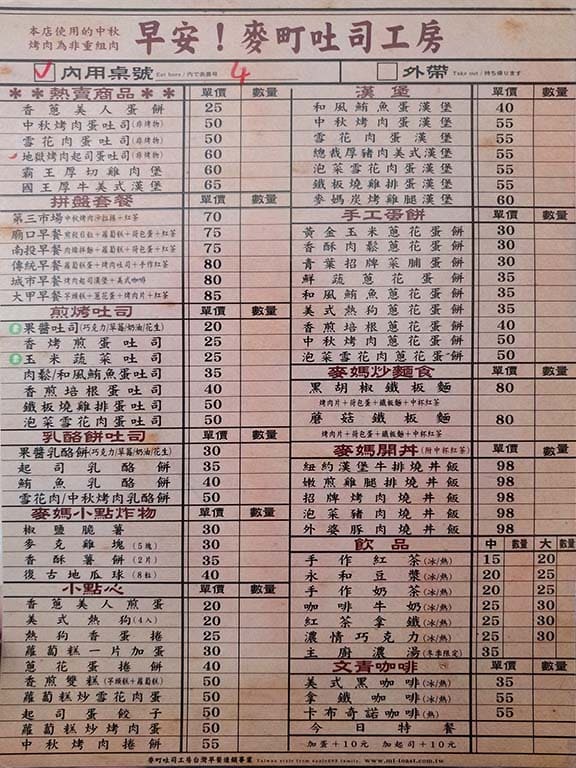 本店使用的中秋
烤肉為非重組肉
早安！麥町吐司工房
內用桌號 Eat here / 內で表番号 4
外帶 Take out / 持ち帰ります
＊＊熱賣商品＊＊ 單價 數量
香蔥美人蛋餅 25
中秋烤肉蛋吐司(非烤物) 50
雪花肉蛋吐司(非烤物) 50
地獄烤肉起司蛋吐司(非烤物) 60
霸王厚切雞肉堡 60
國王厚牛美式漢堡 65
拼盤套餐 單價 數量
第三市場 中秋烤肉沙拉捲+紅茶 70
廟口早餐 煎餃自粒+蘿蔔糕+荷包蛋+紅茶 75
南投早餐 肉燥拌麵+蘿蔔糕+荷包蛋+紅茶 75
傳統早餐 蘿蔔糕蛋+烤肉吐司+手作紅茶 80
城市早餐 烤肉起司漢堡+美式咖啡 80
大甲早餐 芋頭糕+蔥花蛋+烤肉片+紅茶 85
煎烤吐司 單價 數量
果醬吐司(巧克力/草莓/奶油/花生) 20
香烤煎蛋吐司 25
玉米蔬菜吐司 25
肉鬆/和風鮪魚蛋吐司 35
香煎培根蛋吐司 40
鐵板燒雞排蛋吐司 50
泡菜雪花肉蛋吐司 50
乳酪餅吐司 單價 數量
果醬乳酪餅(巧克力/草莓/奶油/花生) 30
起司乳酪餅 35
鮪魚乳酪餅 40
雪花肉/中秋烤肉乳酪餅 50
麥媽小點炸物 單價 數量
椒鹽脆薯 30
麥克雞塊(5塊) 30
香酥薯餅(2片) 35
復古地瓜球(8粒) 40
小點心 單價 數量
香蔥美人煎蛋 20
美式熱狗(4入) 20
熱狗香蛋捲 25
蘿蔔糕一片加蛋 30
蔥花蛋捲餅 40
香煎雙糕(芋頭糕+蘿蔔糕) 50
蘿蔔糕炒雪花肉蛋 50
起司蛋餃子 50
蘿蔔糕炒烤肉蛋 50
中秋烤肉捲餅 55
漢堡 單價 數量
和風鮪魚蛋漢堡 40
中秋烤肉蛋漢堡 55
雪花肉蛋漢堡 55
總裁厚豬肉美式漢堡 55
泡菜雪花肉蛋漢堡 55
鐵板燒雞排蛋漢堡 55
麥媽炭烤雞腿漢堡 60
手工蛋餅 單價 數量
黃金玉米蔥花蛋餅 30
香酥肉鬆蔥花蛋餅 30
青葉招牌菜脯蛋餅 30
鮮蔬蔥花蛋餅 35
和風鮪魚蔥花蛋餅 35
美式熱狗蔥花蛋餅 35
香煎培根蔥花蛋餅 40
中秋烤肉蔥花蛋餅 50
泡菜雪花肉蔥花蛋餅 50
麥媽炒麵食 單價 數量
黑胡椒鐵板麵 80
烤肉片+荷包蛋+鐵板麵+中杯紅茶
蘑菇鐵板麵 80
烤肉片+荷包蛋+鐵板麵+中杯紅茶
麥媽開丼(附中杯紅茶) 單價 數量
紐約漢堡牛排燒丼飯 98
嫩煎雞腿排燒丼飯 98
招牌烤肉燒丼飯 98
泡菜豬肉燒丼飯 98
外婆豚肉燒丼飯 98
飲品 中 數量 大 數量
手作紅茶(冰/熱) 15 20
永和豆漿(冰/熱) 20 25
手作奶茶(冰/熱) 20 25
咖啡牛奶(冰/熱) 25 30
紅茶拿鐵(冰/熱) 25 30
濃情巧克力(冰/熱) 25 30
主廚濃湯(冬季限定) 35
文青咖啡 單價 數量
美式黑咖啡(冰/熱) 35
拿鐵咖啡(冰/熱) 55
卡布奇諾咖啡(熱) 55
今日特餐
加蛋+10元 加起司+10元
麥町吐司工房台灣早餐連鎖事業 www.mt-toast.com.tw